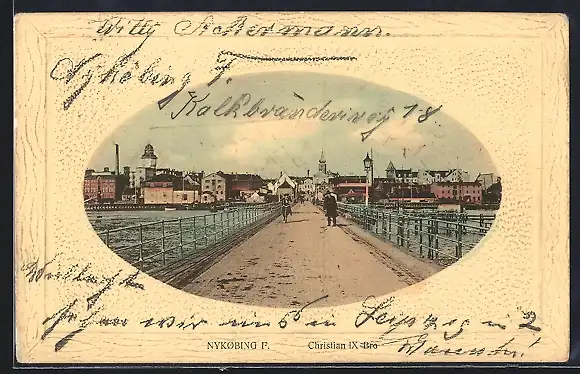 Willy Ackermann.
Nykøbing F.
Kalkbrænderivej 18
wir uns in Leipzig in 2
NYKØBING F. Christian IX Bro